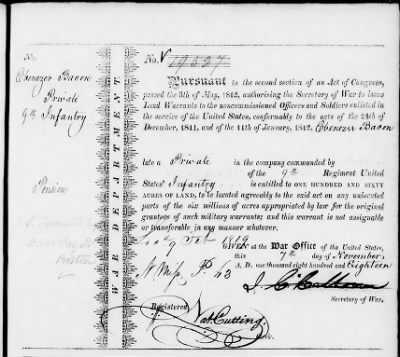 No.
Ebenezer Bacon
Private
9th Infantry
Pension
Boston
WAR DEPARTMENT.
No.
PURSUANT to the second section of an Act of Congress,
passed the 6th of May, 1812, authorising the Secretary of War to issue
Land Warrants to the noncommissioned Officers and Soldiers enlisted in
the service of the United States, conformably to the acts of the 24th of
December, 1811, and of the 11th of January, 1812, Ebenezer Bacon
late a Private in the company commanded by
of the 9th Regiment United
States' Infantry is entitled to ONE HUNDRED AND SIXTY
ACRES OF LAND, to be located agreeably to the said act on any unlocated
parts of the six millions of acres appropriated by law for the original
grantees of such military warrants; and this warrant is not assignable
or transferable in any manner whatever.
1819
GIVEN at the War Office of the United States,
this 7th day of November
A. D. one thousand eight hundred and Eighteen
J. C. Calhoun
Secretary of War.
Registered
Nat Cutting
Clerk.